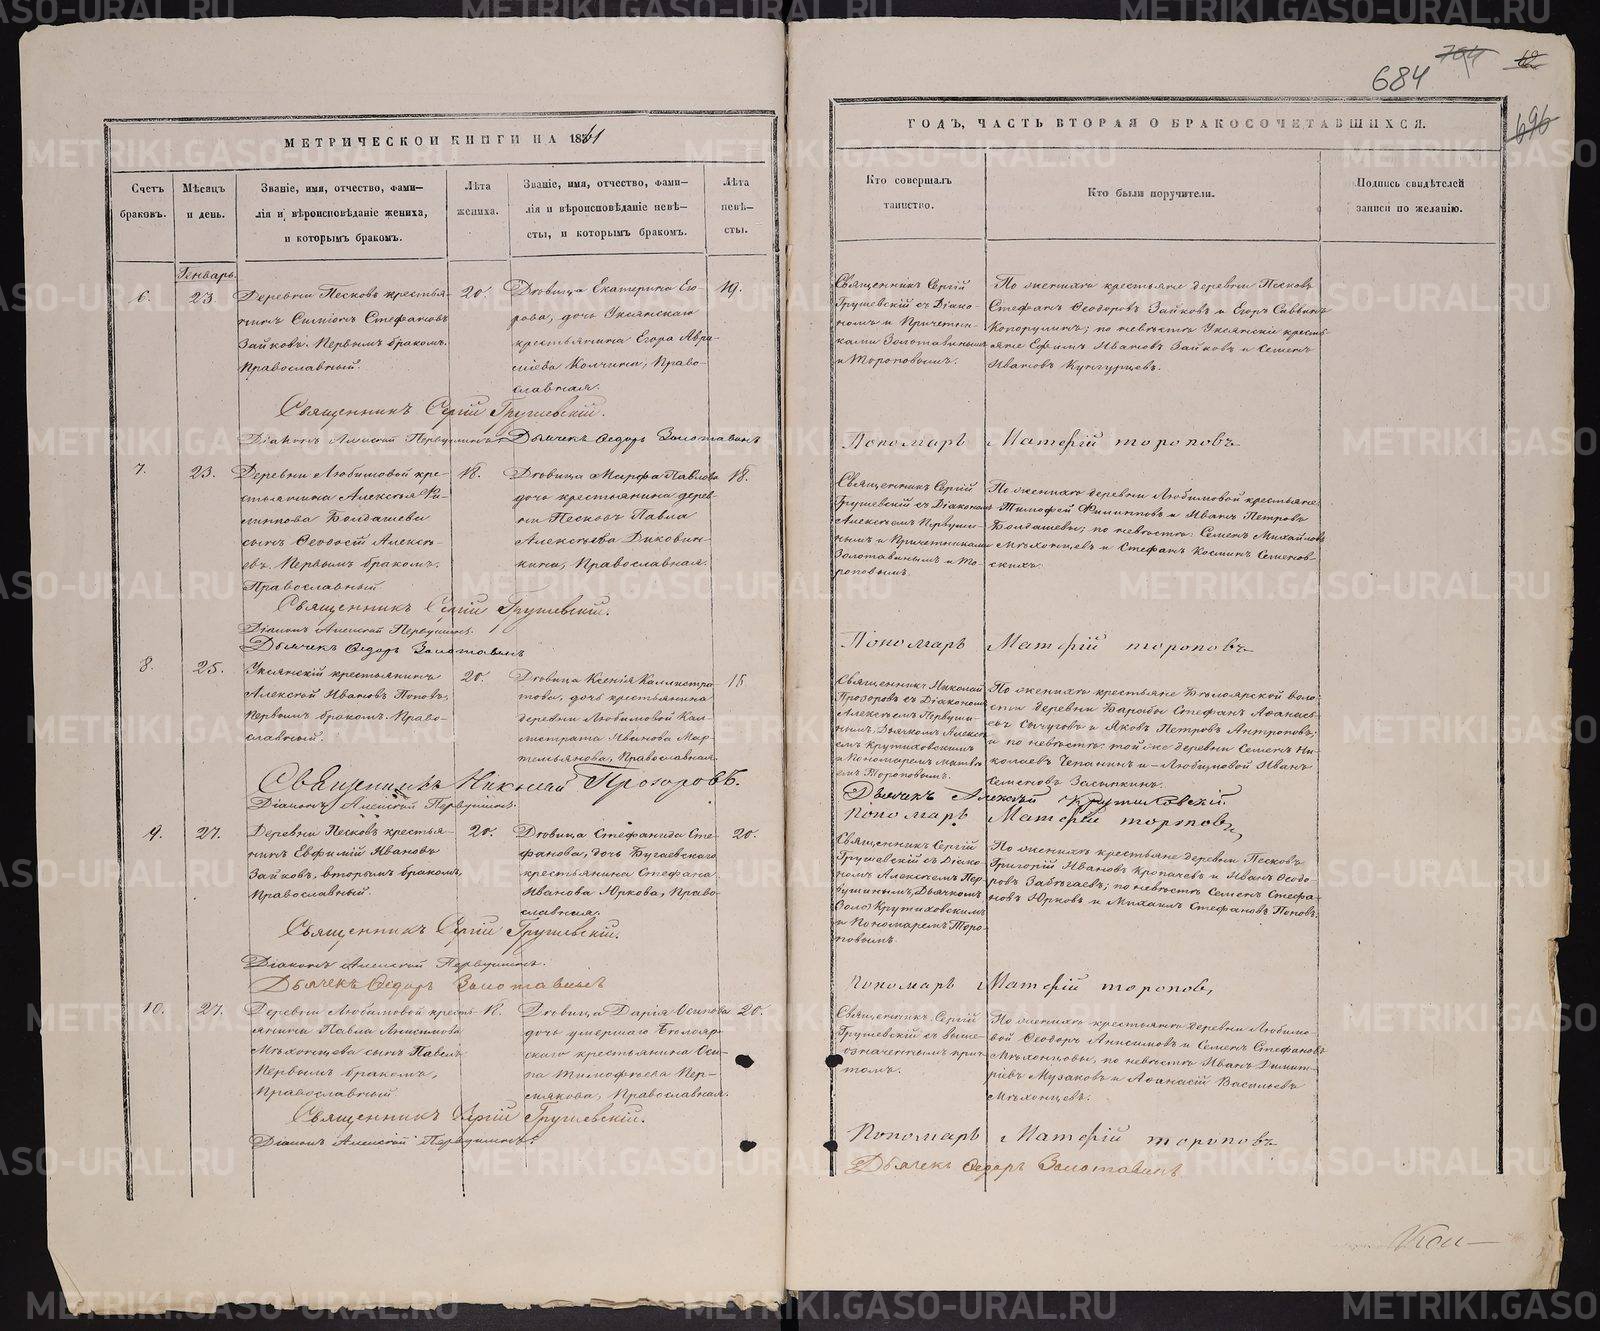 684
МЕТРИЧЕСКОЙ КНИГИ НА 1861
ГОДЪ, ЧАСТЬ ВТОРАЯ О БРАКОСОЧЕТАВШИХСЯ.
696
Счетъ
браковъ.
Мѣсяцъ
и день.
Званіе, имя, отчество, фами—
лія и вѣроисповѣданіе жениха,
и которымъ бракомъ.
Лѣта
жениха.
Званіе, имя, отчество, фами—
лія и вѣроисповѣданіе невѣ—
сты, и которымъ бракомъ.
Лѣта
невѣ—
сты.
Кто совершалъ
таинство.
Кто были поручители.
Подпись свидѣтелей
записи по желанію.
Генварь
6.
23.
Деревни Песковъ крестья-
нинъ Симіонъ Стефановъ
Зайковъ. Первымъ бракомъ.
Православный.
20.
Дѣвица Екатерина Его-
рова, дочь Уксянскаго
крестьянина Егора
Колчина, Право-
славная.
19.
Священникъ Сергій
Грушевскій съ Діако-
номъ и Причетни-
ками Золотавинымъ
и Тороповымъ.
По женихѣ крестьяне деревни Песковъ
Стефанъ Ѳеодоровъ Зайковъ и Егоръ Саввинъ
по невѣстѣ Уксянскіе кресть-
яне Ефимъ Ивановъ Зайковъ и Семенъ
Ивановъ Кунгурцевъ.
Священникъ Сергій Грушевскій.
Діаконъ Алексѣй Первушинъ Дьячекъ Ѳедоръ Золотавинъ
Пономарь Матѳій тороповъ
7.
23.
Деревни Любимовой кре-
стьянина Алексѣя Фи-
липпова Болдашева
сынъ Ѳеодосій Алексѣ-
евъ. Первымъ бракомъ.
Православный
18.
Дѣвица Марѳа Павлова
дочь крестьянина дерев-
ни Песковъ Павла
Алексѣева Диковин-
кина, Православная.
18.
Священникъ Сергій
Грушевскій съ Діакономъ
Алексѣемъ Первуши-
нымъ и Причетниками
Золотавинымъ и То-
роповымъ.
По женихѣ деревни Любимовой крестьяне
Тимофей Филипповъ и Иванъ Петровъ
Болдашевы; по невѣстѣ: Семенъ Михайловъ
Мѣхонцевъ и Стефанъ Косминъ Семенов-
скихъ.
Священникъ Сергій Грушевскій.
Діаконъ Алексѣй Первушинъ.
Дьячекъ Ѳедоръ Золотавинъ
Пономарь Матѳій тороповъ
8.
25.
Уксянскій крестьянинъ
Алексѣй Ивановъ Поповъ,
первымъ бракомъ. Право-
славный.
20.
Дѣвица Ксенія Каллистра-
това, дочь крестьянина
деревни Любимовой Кал-
листрата Иванова Мар-
темьянова, Православная.
18
Священникъ Николай
Прозоровъ съ Діакономъ
Алексѣемъ Первуши-
нымъ, Дьячкомъ Алексѣ-
емъ Крутиховскимъ
и Пономаремъ Матвѣ-
емъ Тороповымъ.
По женихѣ крестьяне Бѣлоярской воло-
сти деревни Барабы Стефанъ Аѳанась-
евъ Сычуговъ и Яковъ Петровъ Антроповъ;
и по невѣстѣ: той же деревни Семенъ Ни-
колаевъ Чепанинъ и Любимовой Иванъ
Семеновъ Засыпкинъ.
Священникъ Николай Прозоровъ.
Діаконъ Алексѣй Первушинъ.
Дьячекъ Алексѣй Крутиховскій.
Пономарь Матѳій тороповъ,
9.
27.
Деревни Песковъ крестья-
нинъ Евфимій Ивановъ
Зайковъ, вторымъ бракомъ,
Православный.
20.
Дѣвица Стефанида Сте-
фанова, дочь Бугаевскаго
крестьянина Стефана
Иванова Юркова, Право-
славная.
20.
Священникъ Сергій
Грушевскій съ Діако-
номъ Алексѣемъ Пер-
вушинымъ, Дьячкомъ
Золо Крутиховскимъ
и Пономаремъ Торо-
повымъ.
По женихѣ крестьяне деревни Песковъ
Григорій Ивановъ Кропачевъ и Иванъ Ѳеодо-
ровъ Забѣгаевъ; по невѣстѣ Семенъ Стефа-
новъ Юрковъ и Михаилъ Стефановъ Поповъ.
Священникъ Сергій Грушевскій.
Діаконъ Алексѣй Первушинъ.
Дьячекъ Ѳедоръ Золотавинъ
Пономарь Матѳій тороповъ,
10.
27.
Деревни Любимовой кресть-
янина Павла Анисимова
Мѣхонцева сынъ Павелъ
Первымъ бракомъ,
Православный
18.
Дѣвица Дарія Осипова
дочь умершаго Бѣлояр-
скаго крестьянина Оси-
па Тимофеева Пер-
мякова, Православная.
20.
Священникъ Сергій
Грушевскій съ выше-
означеннымъ прич-
томъ.
По женихѣ крестьяне деревни Любимо-
вой Ѳеодоръ Анисимовъ и Семенъ Стефановъ
Мѣхонцовы, по невѣстѣ Иванъ Димит-
ріевъ Музаковъ и Аѳанасій Васильевъ
Мѣхонцевъ.
Священникъ Сергій Грушевскій.
Діаконъ Алексѣй Первушинъ.
Пономарь Матѳій тороповъ
Дьячекъ Ѳедоръ Золотавинъ